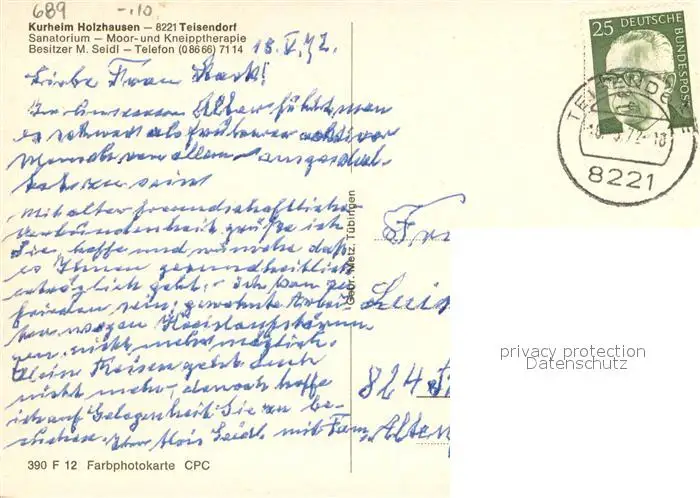 689 -.10
Kurheim Holzhausen – 8221 Teisendorf
Sanatorium – Moor- und Kneipptherapie
Besitzer M. Seidl – Telefon (0 86 66) 71 14
18.V.72.
Liebe Frau
In unserem Alter fühlt man
es schwer als früher
von allem
sein
Mit alter freundschaftlicher
Verbundenheit grüße ich
Sie, hoffe und wünsche daß
es Ihnen gesundheitlich
erträglich geht. – Ich bin zu-
frieden, sein gewohnte Arbei-
ten wegen Kreislaufstörun-
gen nicht mehr möglich.
Mein Reisen geht auch
nicht mehr, danach hoffe
ich auf Gelegenheit Sie zu be-
suchen. Ihr Alois Seidl mit Fam.
390 F 12 Farbphotokarte CPC
Gebr. Metz, Tübingen
25 DEUTSCHE
BUNDESPOST
TEISENDORF
18.5.72-18
8221
824
privacy protection
Datenschutz